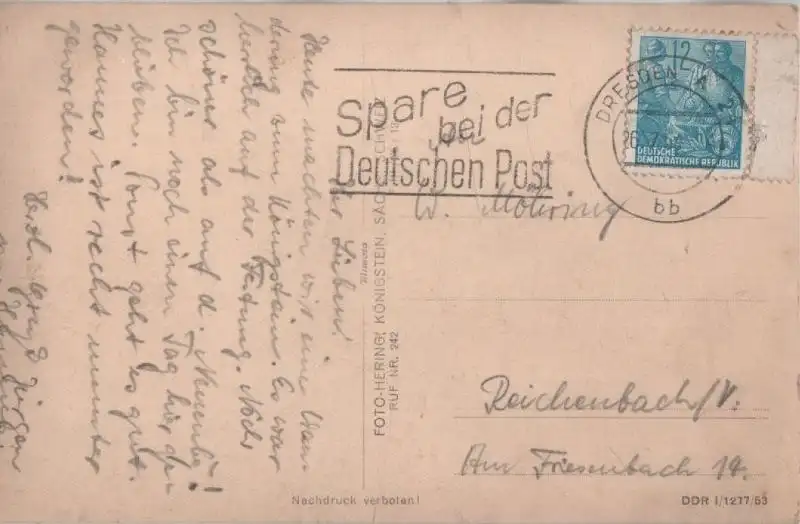 Ihr Lieben!
Heute machten wir eine Wan-
derung zum Königstein. Es war
herrlich auf der Festung. Noch
schöner als auf d.
Ich bin noch einen Tag hier
bleiben. Sonst geht es gut.
Hannes ist recht munter
geworden!
Herzl. Jürgen
FOTO-HERING, KÖNIGSTEIN, SÄCHS. SCHWEIZ
RUF NR. 242
Spare
bei der
Deutschen Post
DRESDEN A
bb
12
DEUTSCHE
DEMOKRATISCHE REPUBLIK
W. Möhring
Reichenbach/V.
Am Friesenbach 14.
Nachdruck verboten!
DDR I/1277/53